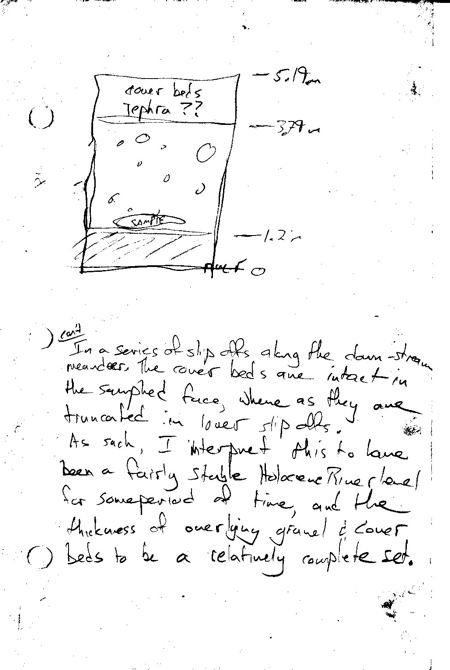 cover beds
Tephra ??
— 5.19m
— 3.79m
SAMPLE
— 1.2m
RIVER 0
con't
In a series of slip offs along the down-stream
meander. The cover beds are intact in
the sampled face, where as they are
truncated in lower slip offs.
As such, I interpret this to have
been a fairly stable Holocene River level
for some period of time, and the
thickness of overlying gravel & cover
beds to be a relatively complete set.